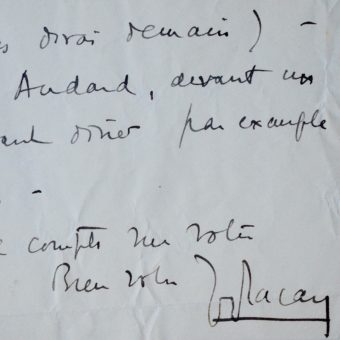 dirai demain) -
Audard, devant un
dîner par exemple
-
compte sur votre
Bien votre Lacan